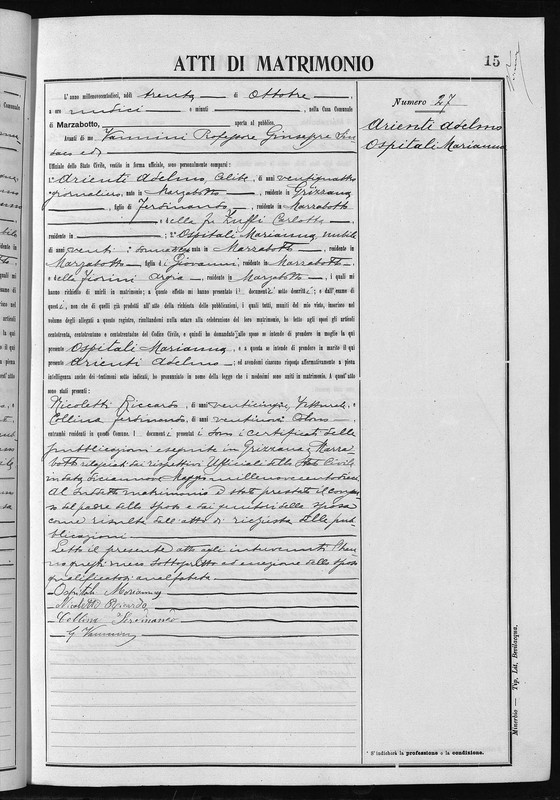 ATTI DI MATRIMONIO
15
Numero 27
Arienti Adelmo
Ospitali Marianna
L'anno millenovecentodieci, addì trenta di Ottobre,
a ore undici e minuti, nella Casa Comunale
di Marzabotto, aperta al pubblico.
Avanti di me Vannini Professore Giuseppe
Ufficiale dello Stato Civile, vestito in forma ufficiale, sono personalmente comparsi:
1° Arienti Adelmo, Celibe, di anni ventiquattro
giornaliero, nato in Marzabotto, residente in Grizzana
, figlio di Ferdinando, residente in Marzabotto
e della fu Zuffi Carlotta,
residente in ; 2° Ospitali Marianna, nubile
di anni venti, nata in Marzabotto, residente in
Marzabotto, figlia di Giovanni, residente in Marzabotto,
e della Fiorini, residente in Marzabotto, i quali mi
hanno richiesto di unirli in matrimonio; a questo effetto mi hanno presentato i documenti sotto descritti; e dall'esame di
questi, non che di quelli già prodotti all'atto della richiesta delle pubblicazioni, i quali tutti, muniti del mio visto, inserisco nel
volume degli allegati a questo registro, risultandomi nulla ostare alla celebrazione del loro matrimonio, ho letto agli sposi gli articoli
centotrenta, centotrentuno e centotrentadue del Codice Civile, e quindi ho domandato allo sposo se intende di prendere in moglie la qui
presente Ospitali Marianna, e a questa se intende di prendere in marito il qui
presente Arienti Adelmo; ed avendomi ciascuno risposto affermativamente a piena
intelligenza anche dei testimoni sotto indicati, ho pronunziato in nome della legge che i medesimi sono uniti in matrimonio. A quest'atto
sono stati presenti:
Nicoletti Riccardo, di anni venticinque,
Collina Ferdinando, di anni ventinove Colono,
entrambi residenti in questo Comune. I documenti presentati sono i certificati delle
pubblicazioni eseguite in Grizzana, Marza
botto rilasciati dai rispettivi Ufficiali dello Stato Civile
in data diciannove Maggio millenovecentodieci
Al suddetto matrimonio è stato prestato il consen
so dal padre dello sposo e dai genitori della sposa
come risulta dall'atto di richiesta delle pub
blicazioni.
Letto il presente atto agli intervenuti l'han
no questi meco sottoscritto ad eccezione dello sposo
qualificatosi analfabeta.
Ospitali Marianna
Nicoletti Riccardo
Collina
G Vannini
* S'indicherà la professione o la condizione.
Minerbio — Tip. Lit. Bevilacqua.